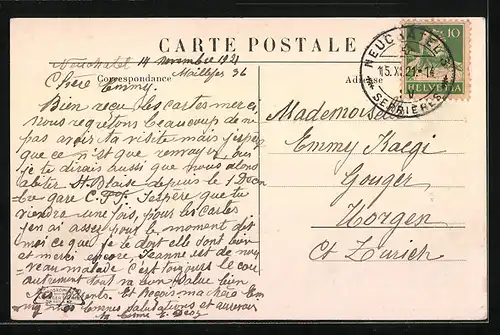 CARTE POSTALE
Neuchatel 14 novembre 1921
Maillefer 36
Correspondance
Adresse
Chère Emmy.
Bien reçu les cartes merci
nous regretons beaucoup de ne
pas avoir ta visite mais j'espère
que ce n'est que renvoyer, oui
je te dirais aussi que nous alons
abiter St. Blaise depuis le 1 Decem
bre gare C.F.F. J'espère que tu
viendra une fois, pour les cartes
j'en ai assez pour le moment dit
moi ce que je te doit elle sont bien
et merci encore, Jeanne est de nou
veau malade c'est toujours le cou
autrement tout va bien salue bien
tes parents. Et Reçois ma chère Em
my nos salutations et au revoir
Mademoiselle
Emmy Kaegi
Gouger
Horgen
Ct Zurich
NEUCHATEL 5
15.XI.21.-14
SERRIÈRES
10
HELVETIA